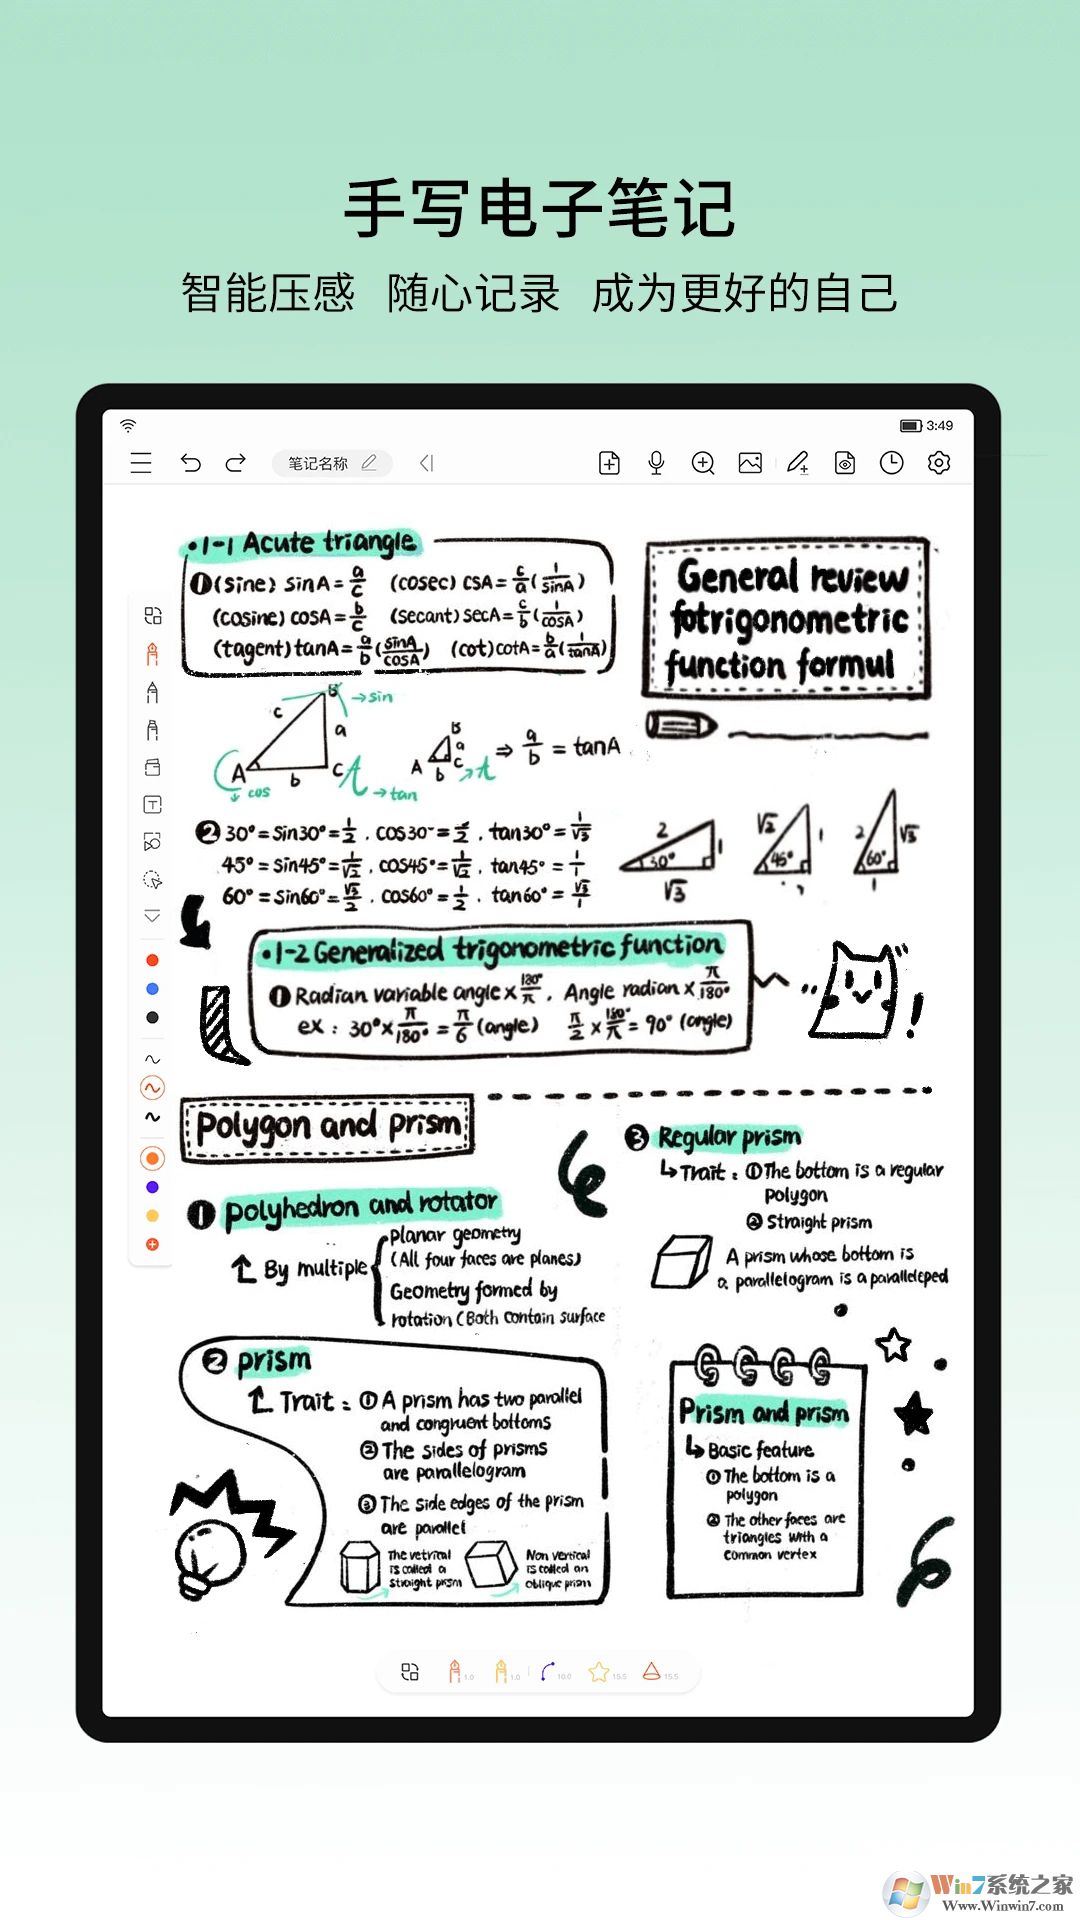 手写电子笔记
智能压感 随心记录 成为更好的自己
3:49
笔记名称
•1-1 Acute triangle
①(sine) sinA=a/c (cosec) cSA=c/a(1/sinA)
(cosine) cosA=b/c (secant) secA=c/b(1/cosA)
(tagent) tanA=a/b(sinA/cosA) (cot) cotA=b/a(1/tanA)
General review
fotrigonometric
function formul
B →sin
c a
A b C
↓cos →tan
B
a
A b C
⇒ a/b = tanA
② 30°=Sin30°=1/2 . COS30°= . tan30°=1/√3
45°=Sin45°=1/√2 . COS45°=1/√2 . tan45°=1/1
60°=Sin60°=√3/2 . COS60°=1/2 . tan60°=√3/1
2 1 30° √3
√2 1 45°
2 √3 60° 1
•1-2 Generalized trigonometric function
①Radian variable angle×180°/π, Angle radian×π/180°
ex: 30°×π/180°=π/6 (angle) π/2×180°/π=90° (angle)
Polygon and prism
① polyhedron and rotator
By multiple
Planar geometry
(All four faces are planes)
Geometry formed by
rotation (Both contain surface
③ Regular prism
↳Trait: ①The bottom is a regular
polygon
②Straight prism
A prism whose bottom is
a parallelogram is a paralleleped
② prism
Trait: ①A prism has two parallel
and congruent bottoms
②The sides of prisms
are parallelogram
③The side edges of the prism
are parallel
The vetrical
is called a
straight prism
Non vertical
is called an
oblique prism
Prism and prism
↳Basic feature
①The bottom is a
polygon
②The other faces are
triangles with a
common vertex
1.0 1.0 10.0 15.5 15.5
Win7系统之家
Www.Winwin7.com